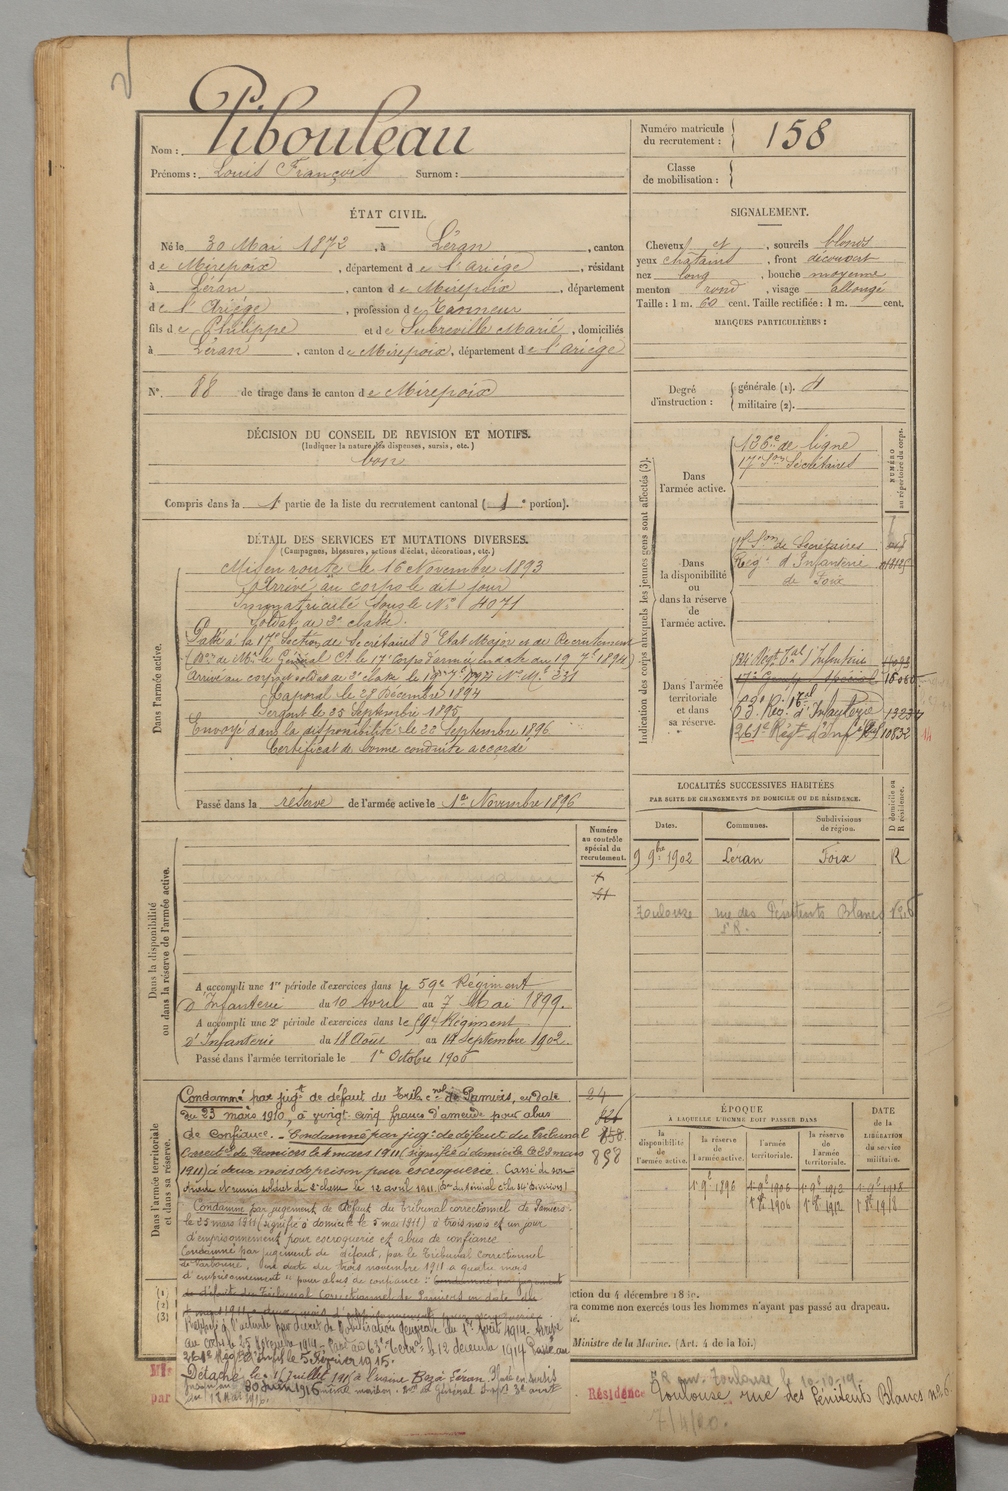 Nom : Pibouleau
Prénoms : Louis François Surnom :
Numéro matricule du recrutement : 158
Classe de mobilisation :
ÉTAT CIVIL.
Né le 30 Mai 1872, à Léran, canton
de Mirepoix, département de l'Ariège, résidant
à Léran, canton de Mirepoix, département
de l'Ariège, profession de Tanneur
fils de Philippe et de Subreville Marie, domiciliés
à Léran, canton de Mirepoix, département de l'ariège
N° 88 de tirage dans le canton de Mirepoix
SIGNALEMENT.
Cheveux et, sourcils blonds
yeux chatains, front découvert
nez long, bouche moyenne
menton rond, visage allongé
Taille : 1 m. 60 cent. Taille rectifiée : 1 m. cent.
MARQUES PARTICULIÈRES :
Degré d'instruction : générale (1).
militaire (2).
DÉCISION DU CONSEIL DE REVISION ET MOTIFS.
(Indiquer la nature des dispenses, sursis, etc.)
bon
Compris dans la 1e partie de la liste du recrutement cantonal (1e portion).
DÉTAIL DES SERVICES ET MUTATIONS DIVERSES.
(Campagnes, blessures, actions d'éclat, décorations, etc.)
Dans l'armée active.
Mis en route le 16 Novembre 1893
Arrivé au corps le dit jour
Immatriculé sous le N° 4071
Soldat de 2e classe.
Passé à la 17e Section de Secrétaires d'Etat Major et de Recrutement
Arrivé au corps et soldat de 2e classe le
Caporal le 28 Décembre 1894
Sergent le 25 Septembre 1895
Envoyé dans la disponibilité le 22 Septembre 1896
Certificat de bonne conduite accordé
Passé dans la réserve de l'armée active le 1er Novembre 1896
Indication des corps auxquels les jeunes gens sont affectés (3).
NUMÉRO au répertoire du corps.
Dans l'armée active.
136e de ligne
17e Son Secrétaires
Dans la disponibilité ou dans la réserve de l'armée active.
17e Son de Secrétaires
Régt d'Infanterie
de Foix
Dans l'armée territoriale et dans sa réserve.
134e Régt Tal d'Infanterie
63e Régt d'Infanterie
261e Régt d'Inf 10832
LOCALITÉS SUCCESSIVES HABITÉES
PAR SUITE DE CHANGEMENTS DE DOMICILE OU DE RÉSIDENCE.
Dates. Communes. Subdivisions de région. D domicile ou R résidence.
9 9bre 1902 Léran Foix R
Toulouse rue des Pénitents Blancs N° 6
Dans la disponibilité ou dans la réserve de l'armée active.
Numéro au contrôle spécial du recrutement.
A accompli une 1re période d'exercices dans le 59e Régiment
d'Infanterie du 10 Avril au 7 Mai 1899.
A accompli une 2e période d'exercices dans le 59e Régiment
d'Infanterie du 18 Août au 14 Septembre 1902.
Passé dans l'armée territoriale le 1er Octobre 1906
Dans l'armée territoriale et dans sa réserve.
Condamné par jugt de défaut du Trib. cnel de Pamiers, en date
du 23 mars 1910, à vingt cinq francs d'amende pour abus
de confiance. - Condamné par jugt de défaut du Tribunal
Correctel de Pamiers le 4 mars 1911 (signifié à domicile le 23 mars
1911) à deux mois de prison pour escroquerie. Cassé de son
grade et remis soldat de 2e classe le 12 avril 1911.
Condamné par jugement de défaut du Tribunal correctionnel de Pamiers
le 25 mars 1911 (signifié à domicile le 5 mai 1911) à trois mois et un jour
d'emprisonnement pour escroquerie et abus de confiance
Condamné par jugement de défaut, par le Tribunal correctionnel
de Narbonne, en date du trois novembre 1911 à quatre mois
d'emprisonnement "pour abus de confiance". Condamné par jugement
de défaut du Tribunal Correctionnel de Pamiers en date du
Rappelé à l'activité par décret de Mobilisation générale du 1er Août 1914. Arrivé
au corps le 25 Novembre 1914. le 12 décembre 1914 Passé au
261e Régt d'Infie le 5 Février 1915.
Détaché le 1 Juillet 1915 à l'usine Bez à Léran.
30 Juin 1916
24
626
858
898
ÉPOQUE
À LAQUELLE L'HOMME DOIT PASSER DANS
la disponibilité de l'armée active. la réserve de l'armée active. l'armée territoriale. la réserve de l'armée territoriale.
DATE de la LIBÉRATION du service militaire.
1er 9e 1896 1er 9e 1906 1er 9e 1912 1er 9e 1918
1er 8e 1906 1er 8e 1912 1er 8e 1918
(1)
(2)
(3)
ction du 4 décembre 18
ra comme non exercés tous les hommes n'ayant pas passé au drapeau.
Ministre de la Marine. (Art. 4 de la loi.)
par
Résidence
Toulouse le 10-10-19
Toulouse rue des Pénitents Blancs n° 6
7/4/20.